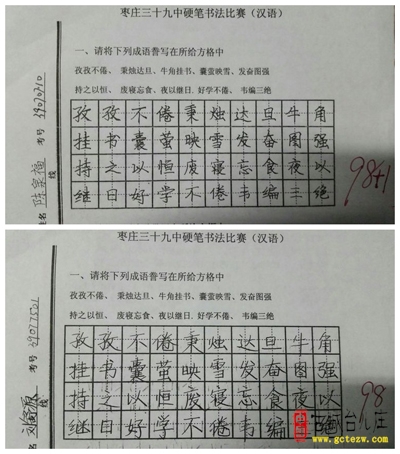 枣庄三十九中硬笔书法比赛（汉语）
一、请将下列成语誊写在所给方格中
孜孜不倦、秉烛达旦、牛角挂书、囊萤映雪、发奋图强
持之以恒、废寝忘食、夜以继日、好学不倦、韦编三绝
孜孜不倦秉烛达旦牛角
挂书囊萤映雪发奋图强
持之以恒废寝忘食夜以
继日好学不倦韦编三绝
98+1
考号 39010710
陈宗福
线
枣庄三十九中硬笔书法比赛（汉语）
一、请将下列成语誊写在所给方格中
孜孜不倦、秉烛达旦、牛角挂书、囊萤映雪、发奋图强
持之以恒、废寝忘食、夜以继日、好学不倦、韦编三绝
孜孜不倦秉烛达旦牛角
挂书囊萤映雪发奋图强
持之以恒废寝忘食夜以
继日好学不倦韦编三绝
98
考号
线
www.gctezw.com